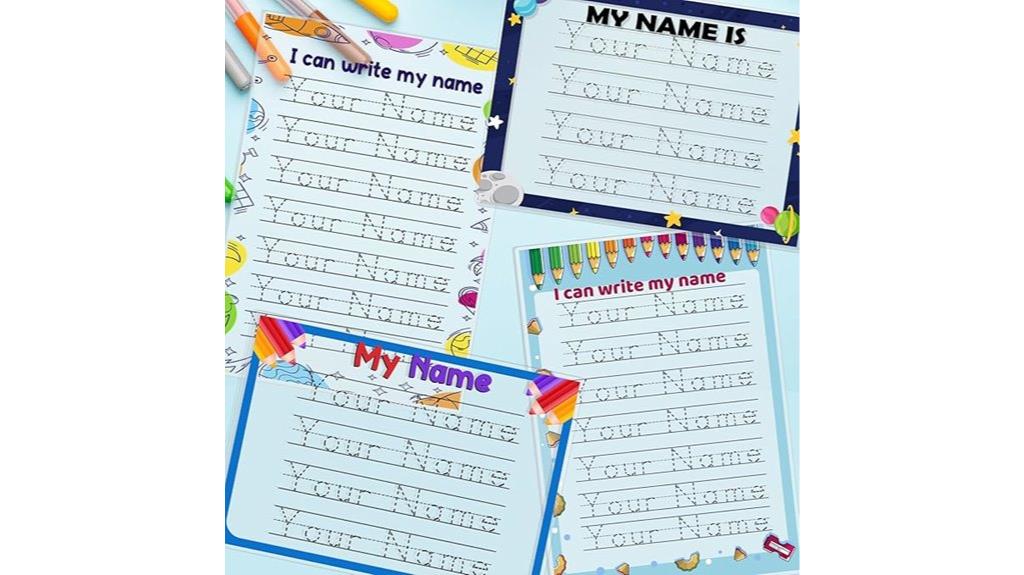 I can write my name
Your Name
Your Name
Your Name
Your Name
Your Name
Your Name
MY NAME IS
Your Name
Your Name
Your Name
Your Name
My Name
Your Name
Your Name
Your Name
Your Name
I can write my name
Your Name
Your Name
Your Name
Your Name
Your Name
Your Name
Your Name